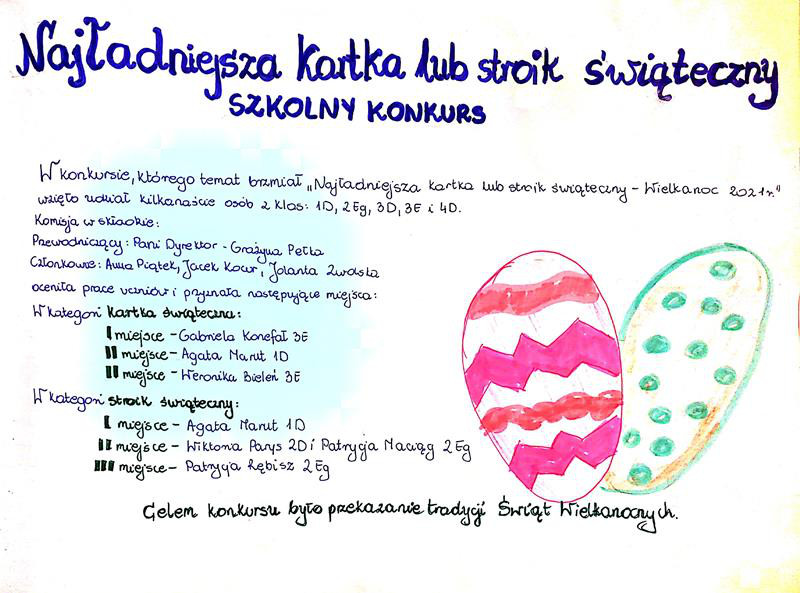 Najładniejsza kartka lub stroik świąteczny
SZKOLNY KONKURS
W konkursie, którego temat brzmiał „Najładniejsza kartka lub stroik świąteczny - Wielkanoc 2021r."
wzięło udział kilkanaście osób z klas: 1D, 2Eg, 3D, 3E i 4D.
Komisja w składzie:
Przewodniczący: Pani Dyrektor - Grażyna Pełka
Członkowie: Anna Piątek, Jacek Kocur, Jolanta Zwolska
oceniła prace uczniów i przyznała następujące miejsca:
W kategorii kartka świąteczna:
I miejsce - Gabriela Konefał 3E
II miejsce - Agata Marut 1D
II miejsce - Weronika Bieleń 3E
W kategorii stroik świąteczny:
I miejsce - Agata Marut 1D
II miejsce - Wiktoria Parys 2D i Patrycja Maciąg 2Eg
III miejsce - Patrycja Rębisz 2Eg
Celem konkursu było przekazanie tradycji Świąt Wielkanocnych.